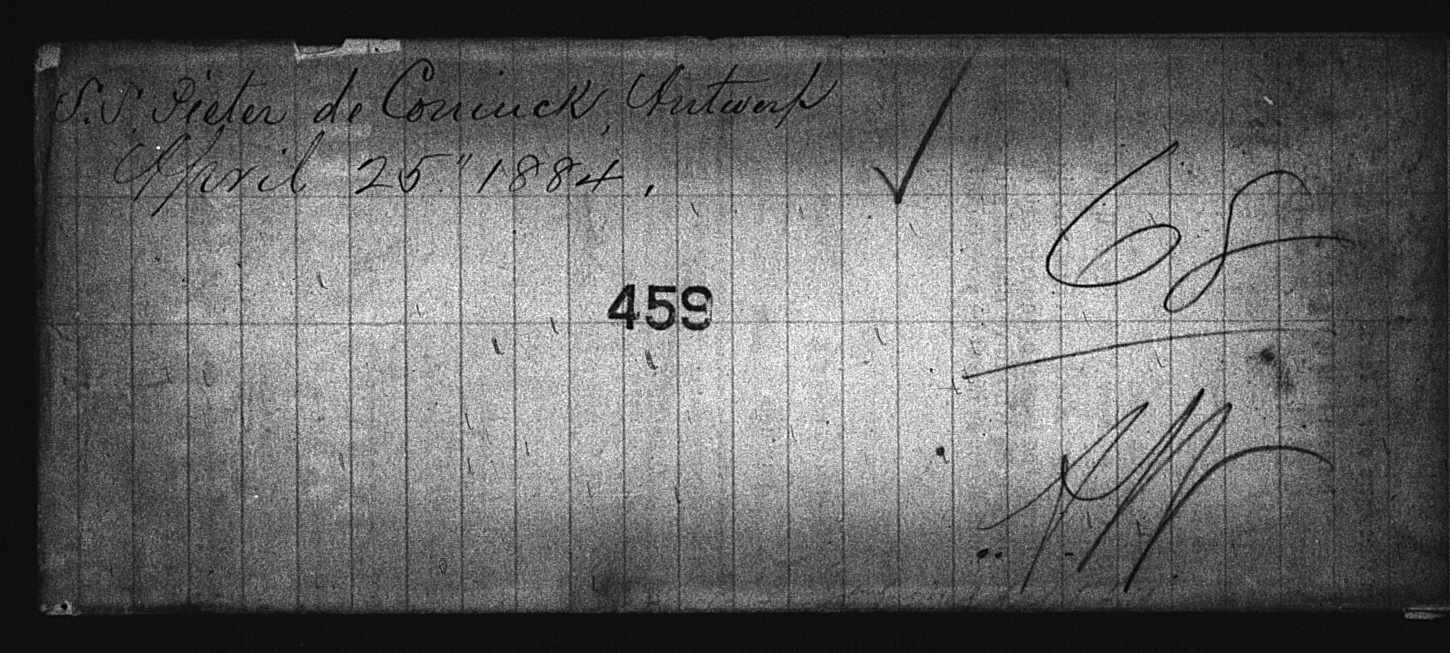 S.S. Pieter de Coninck, Antwerp
April 25" 1884.
68
459